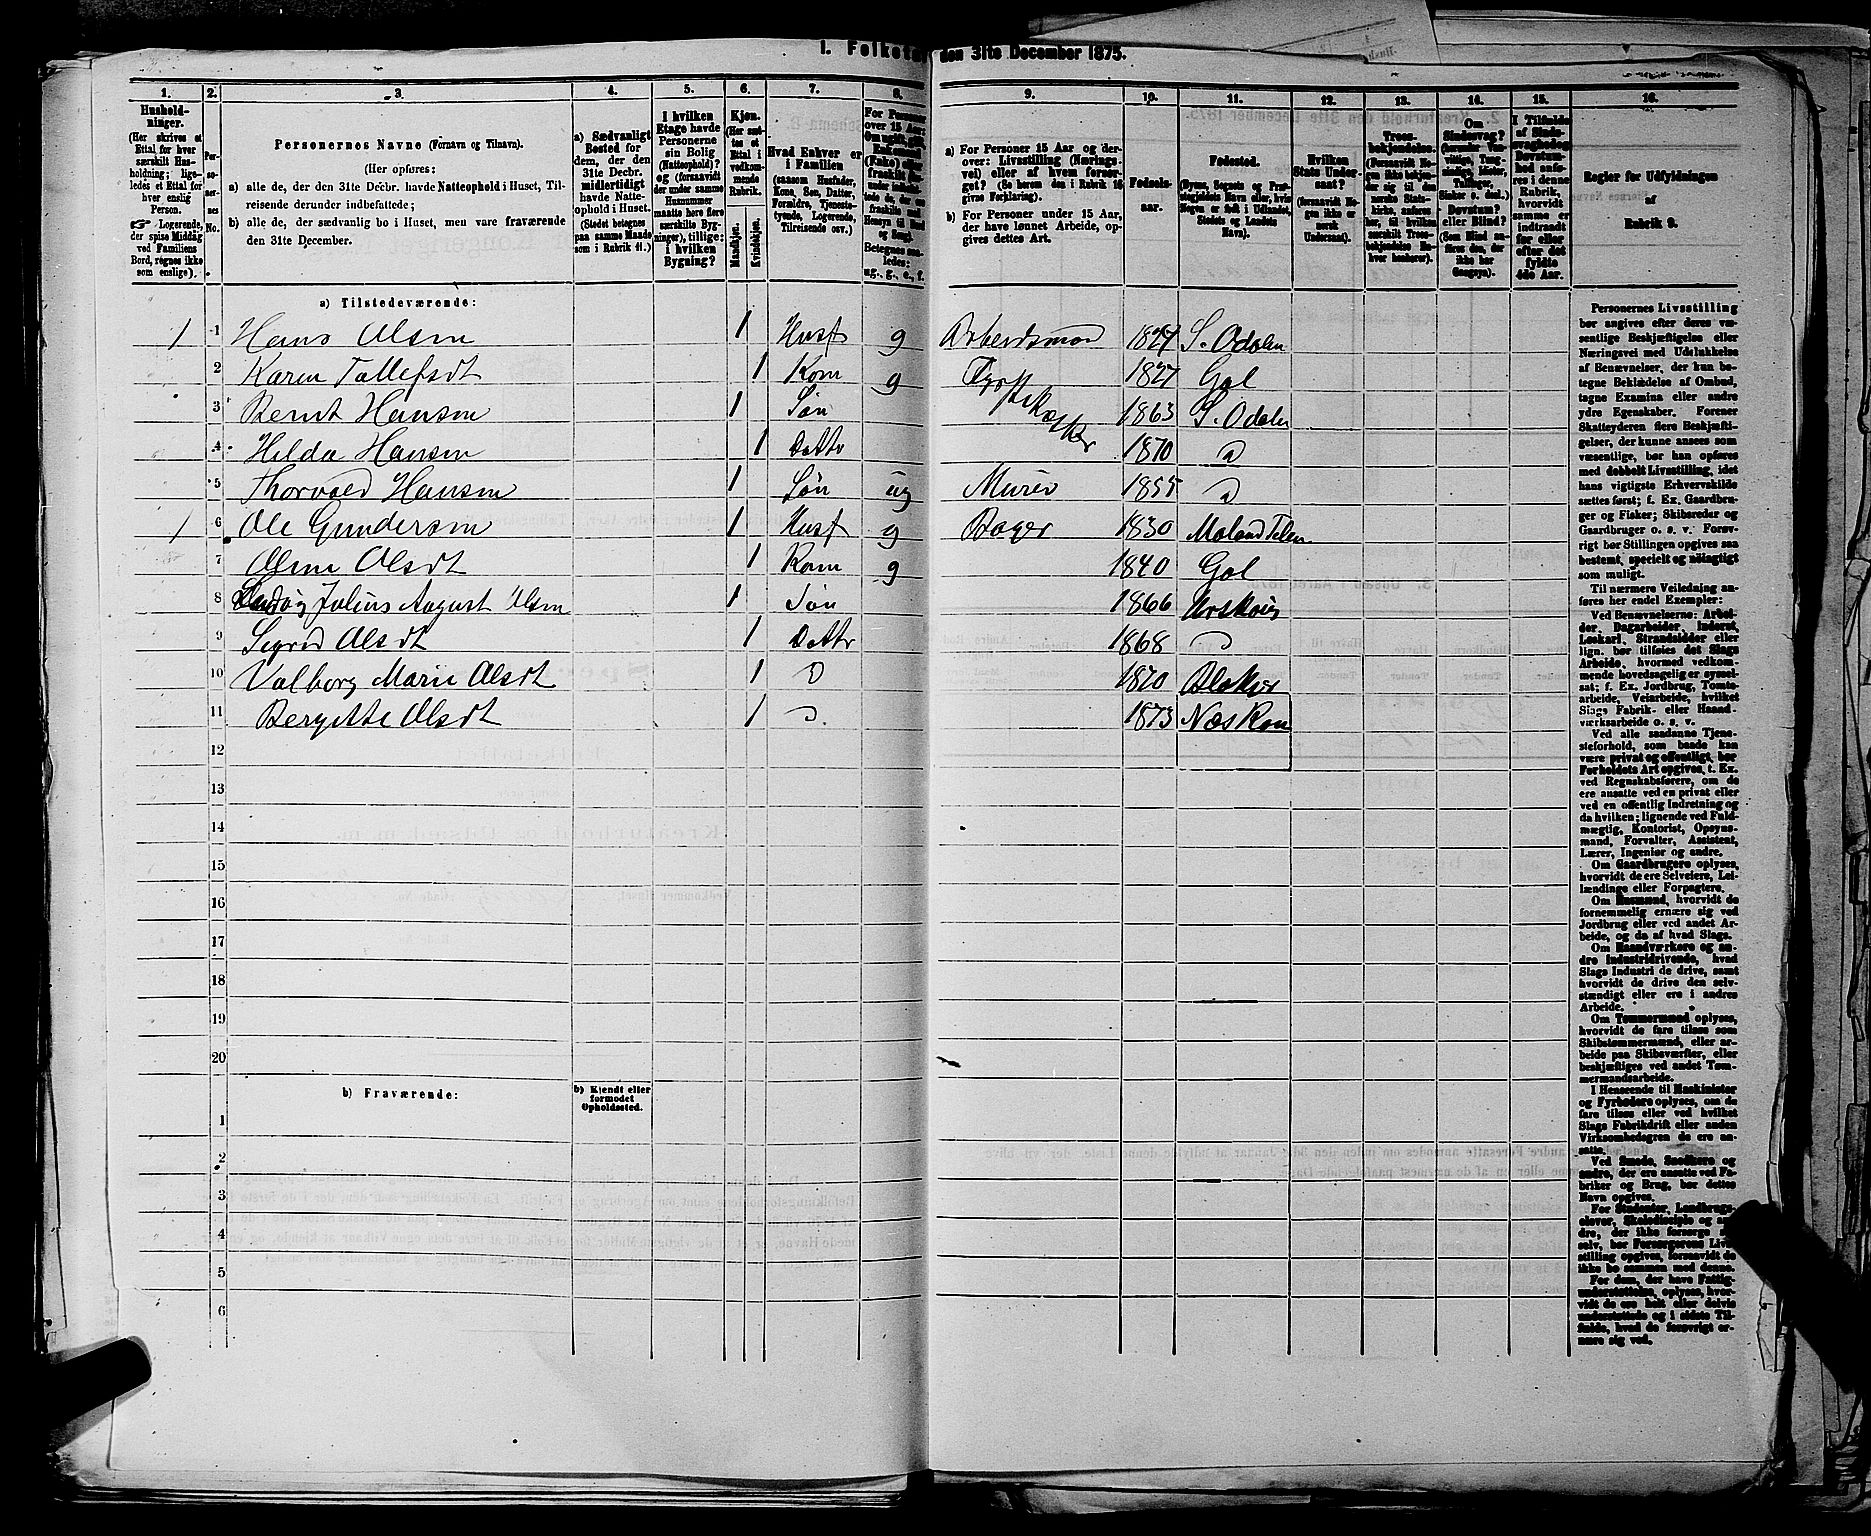 1. Folketæ den 31te December 1875.
1. 2. 3. 4. 5. 6. 7. 8. 9. 10. 11. 12. 13. 14. 15. 16.
Hushold-
ninger.
(Her skrives et
Ettal for hver
særskilt Hus-
holdning; lige-
ledes et Ettal for
hver enslig
Person.
☞ Logerende,
der spise Middag
ved Familiens
Bord, regnes ikke
som enslige).
Per-
so-
ner-
nes
No.
Personernes Navne (Fornavn og Tilnavn).
(Her opføres:
a) alle de, der den 31te Decbr. havde Natteophold i Huset, Til-
reisende derunder indbefattede;
b) alle de, der sædvanlig bo i Huset, men vare fraværende
den 31te December.
a) Sædvanligt
Bosted for
dem, der den
31te Decbr.
midlertidigt
havde Natte-
ophold i Huset.
(Stedet betegnes
paa samme Maade
som i Rubrik 11.)
I hvilken
Etage havde
Personerne
sin Bolig
(Natteophold)?
og (forsaavidt
der under samme
Husnummer
maatte høre flere
særskilte Byg-
ninger), tillige:
i hvilken
Bygning?
Kjøn.
(Her sæt-
tes et
Ettal i
vedkom-
mende
Rubrik.
Mandkjøn.
Kvindekjøn.
Hvad Enhver er
i Familien
(saasom Husfader,
Kone, Søn, Datter,
Forældre, Tjeneste-
tyende, Logerende,
Tilreisende osv.)
For Personer
over 15 Aar:
a) For Personer 15 Aar og der-
over: Livsstilling (Nærings-
vei) eller af hvem forsør-
get? (Se herom den i Rubrik 16
givne Forklaring).
b) For Personer under 15 Aar,
der have lønnet Arbeide, op-
gives dettes Art.
Fødsels-
aar.
Fødested.
(Byens, Sognets og Præ-
stegjeldets Navn eller, hvis
Nogen er født i Udlandet,
Stedets og Landets
Navn).
Hvilken
Stats Under-
saat?
(forsaavidt No-
gen ikke er
norsk
Undersaat).
Troes-
bekjendelse.
(Forsaavidt No-
gen ikke bekjen-
der sig til den
norske Stats-
kirke, anføres
her, til hvilken
særskilt Troes-
bekjendelse En-
hver henhører).
Om
Sindssvag?
Døvstum?
eller Blind?
I Tilfælde
af Sinds-
svaghed og
Døvstum-
hed anfø-
res i denne
Rubrik,
hvorvidt
samme er
indtraadt
før eller
efter det
fyldte
4de Aar.
Regler for Udfyldningen
af
Rubrik 9.
a) Tilstedeværende:
1 1 Hans Olsen 1 Husf g Arbeidsman 1827 S. Odalen
2 Karen Tollefsdt 1 Kone g 1827 Gol
3 Bernt Hansen 1 Søn 1863 S. Odalen
4 Hilda Hansen 1 Datter 1870 D
5 Thorvald Hansen 1 Søn ug Murer 1855 D
1 6 Ole Gundersen 1 Husf g Bager 1830 Moland Telem
7 Olsdt 1 Kone g 1840 Gol
8 Julius August Olsen 1 Søn 1866 Urskoug
9 Sigrid Olsdt 1 Datter 1868 D
10 Valborg Marie Olsdt 1 D 1870 Blakjer
11 Bergitte Olsdt 1 D. 1873 Næs Rom
12
13
14
15
16
17
18
19
20
b) Fraværende:
b) Kjendt eller
formodet
Opholdssted.
1
2
3
4
5
6
Personernes Livsstilling
bør angives efter deres væ-
sentlige Beskjæftigelse eller
Næringsvei med Udelukkelse
af Benævnelser, der kun be-
tegne Beklædelse af Ombud,
tagne Examina eller andre
ydre Egenskaber. Forener
Skatteyderen flere Beskjæfti-
gelser, der kunne ansees som
væsentlige, bør han opføres
med dobbelt Livsstilling, idet
hans vigtigste Erhvervskilde
sættes først; f. Ex. Gaardbru-
ger og Fisker; Skibsreder og
Gaardbruger o. s. v. Forøv-
rigt bør Stillingen opgives saa
bestemt, specielt og nøiagtigt
som muligt.
Til nærmere Veiledning an-
føres her endel Exempler:
Ved Benævnelserne: Arbei-
der, Dagarbeider, Inderst,
Løskarl, Strandsidder eller
lign. bør tilføies det Slags
Arbeide, hvormed vedkom-
mende hovedsagelig er syssel-
sat; f. Ex. Jordbrug, Tomte-
arbeide, Veiarbeide, hvilket
Slags Fabrik- eller Haand-
værksarbeide o. s. v.
Ved alle saadanne Tjene-
steforhold, som baade kan
være privat og offentligt, bør
Forholdets Art opgives, t. Ex.
ved Regnskabsførere, om de
ere ansatte ved en privat eller
ved en offentlig Indretning og
da hvilken; lignende ved Fuld-
mægtig, Kontorist, Opsyns-
mand, Forvalter, Assistent,
Lærer, Ingeniør og andre.
Om Gaardbrugere oplyses,
hvorvidt de ere Selveiere, Lei-
lændinge eller Forpagtere.
Om Husmænd, hvorvidt de
fornemmelig ernære sig ved
Jordbrug eller ved andet Ar-
beide, og da af hvad Slags.
Om Haandværkere og an-
dre Industridrivende, hvad
Slags Industri de drive, samt
hvorvidt de drive den selv-
stændigt eller ere i andres
Arbeide.
Om Tømmermænd oplyses,
hvorvidt de fare tilsøs som
Skibstømmermænd, eller ar-
beide paa Skibsværfter, eller
beskjæftiges ved andet Tøm-
mermandsarbeide.
I Henseende til Maskinister
og Fyrbødere oplyses, om de
fare tilsøs eller ved hvilket
Slags Fabrikdrift eller anden
Virksomhedsgren de ere an-
satte.
Ved Smede, Snedkere og
andre, der ere ansatte ved Fa-
briker og Brug, bør dettes
Navn opgives.
For Studenter, Landbrugs-
elever, Skoledisciple og an-
dre, der ikke forsørge sig
selv, bør Forsørgerens Livs-
stilling opgives, forsaavidt de
ikke bo sammen med denne.
For dem, der have Fattig-
understøttelse, oplyses, hvor-
vidt de ere helt eller delvis
understøttede og i sidste Til-
fælde, hvad de forøvrigt er-
nære sig ved.